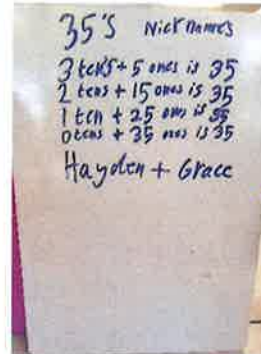 35's Nicknames
3 tens + 5 ones is 35
2 tens + 15 ones is 35
1 ten + 25 ones is 35
0 tens + 35 ones is 35
Hayden + Grace